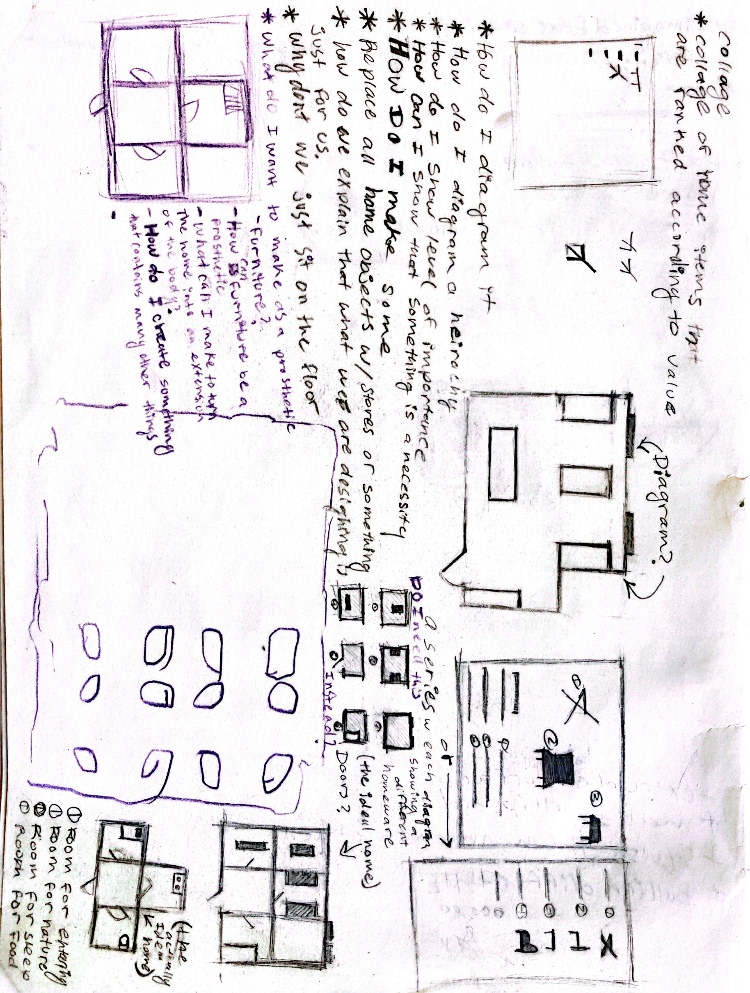 collage
* collage of home items that
are ranked according to value
Diagram?
* How do I diagram it
* How do I diagram a heirachy
* How do I show level of importance
* How can I show that something is a necessity
* HOW DO I make some
* Replace all home objects w/ stores or something
* how do we explain that what we are designing is
just for us.
* Why dont we just sit on the floor
* What do I want to make as a prosthetic
- furniture?
- How can furniture be a
prosthetic
- What can I make to turn
the home into an extension
of the body?
- How do I create something
that contains many other things
-
a series w each diagram
showing a
different
homeware
or
DO I need this
Instead?
(the ideal home)
Doors?
(the
actually
ideal
home)
① Room for entering
① Room for nature
② Room for sleep
① Room for food